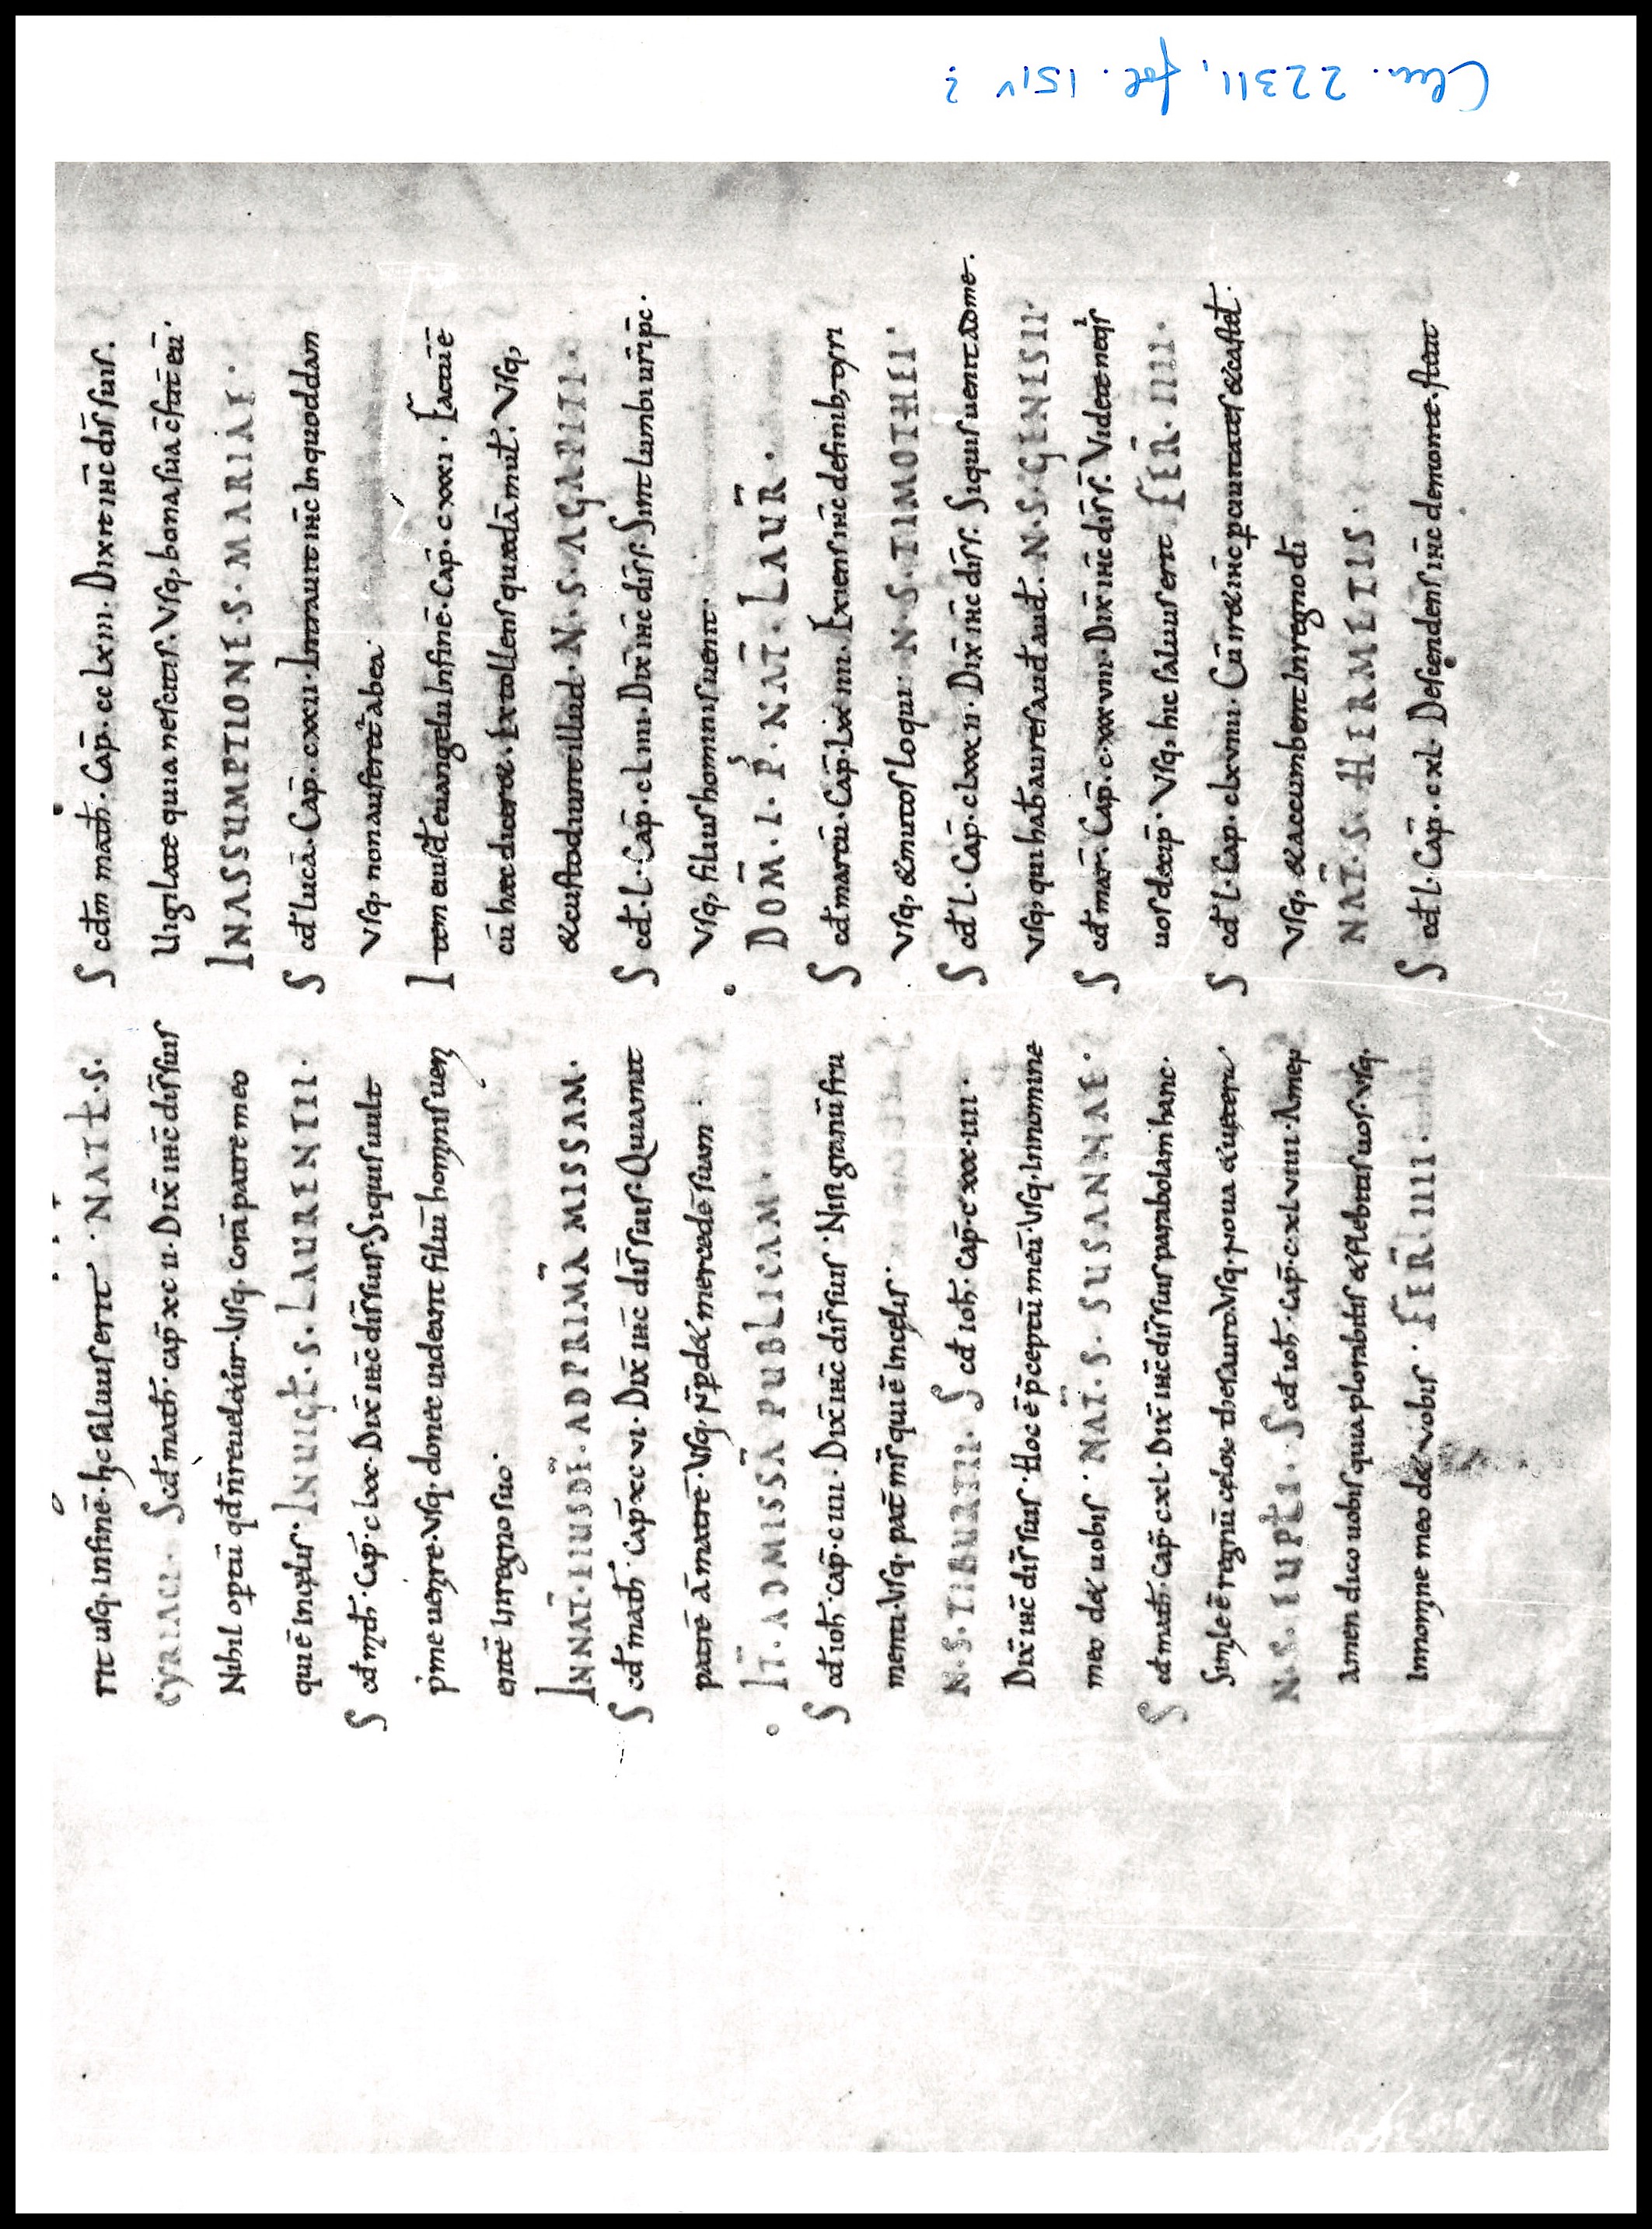 Clm. 22311, fol. 151v ?
nt usq. infinē. hc saluus erit. NATt. S.
CYRIACI. Scd math. cap̄. xc ii. Dix̄ ihc̄ dis̄ suis
Nihil optū qd n̄ reueletur. Usq. corā patre meo
qui ē incelis. IN UIGt. S. LAURENTII.
Scd mth. Cap̄. c lxx. Dix̄ ihc̄ dis̄ suis. Siquis uult
p me uenire. Usq. donec uideant filiū hominis uen
entē in regno suo.
IN NAT̄. EIUSDĒ. AD PRIMĀ MISSAM.
Scd math. Cap̄. xc vi. Dix̄ ihc̄ dis̄ suis. Quiamat
patrē aˉ matrē. Usq. n̄ pd& mercedē suam.
IT̄. AD MISSĀ PUBLICAM.
Scd ioh. cap̄. c iiii. Dix̄ ihc̄ dis̄ suis. Nisi granū fru
menti. Usq. pat̄ ms̄ qui ē incelis.
N. S. TIBURTII. Scd ioh. cap̄. c xxx. iiii.
Dix̄ ihc̄ dis̄ suis. Hoc ē p̄ceptū meū. Usq. in nomine
meo d& uobis. NAT̄. S. SUSANNAE.
Scd math. Cap̄. c xl. Dix̄ ihc̄ dis̄ suis parabolam hanc.
Simile ē regnū celor thesauro. Usq. noua & uetera
N. S. EUPLI. Scd ioh. cap̄. c xl viiii. Amen
amen dico uobis quia plorabitis & flebitis uos. Usq.
in nomine meo d& uobis. FER̄. IIII.
Scdm math. Cap̄. cc lxiii. Dixit ihc̄ dis̄ suis.
Uigilate quia nescitis. Usq, bona sua c̄stit eū.
IN ASSUMPTIONE. S. MARIAE.
Scd lucā. Cap̄. cxxii. Intrauit ihc̄ in quoddam
Usq, non auferet ab ea.
Item eusd euangelii infinē. Cap̄. c xxxi. Factū ē
cū haec diceret. Extollens quedā mul. Usq,
& custodiunt illud. N. S. AGAPITI.
Scd. L. Cap̄. c liii. Dix̄ ihc̄ dis̄ s. Sint lumbi uri p̄c.
Usq, filius hominis uenit.
DOM̄. I. P. NAT̄. LAUR̄.
Scd marcū. Cap̄. lxx iiii. Exiens ihc̄ de finib, tyri
Usq, & mutos loqui. N. S. TIMOTHEI.
Scd L. Cap̄. clxxx ii. Dix̄ ihc̄ dis̄ s. Siquis uenit ad me.
Usq, qui hab aures aud aud. N. S. GENESII.
Scd mar̄. Cap̄. c xxx viii. Dix̄ ihc̄ dis̄ s. Videte neqs
uos decip̄. Usq, hic saluus erit. FER̄. IIII.
Scd L. Cap. clxviiii. Cū iret ihc̄ p ciuitates & castel.
Usq, & accumbent in regno di
NAT̄. S. HERMETIS.
Scd L. Cap̄. c xl. Descendens ihc̄ de monte. stetit